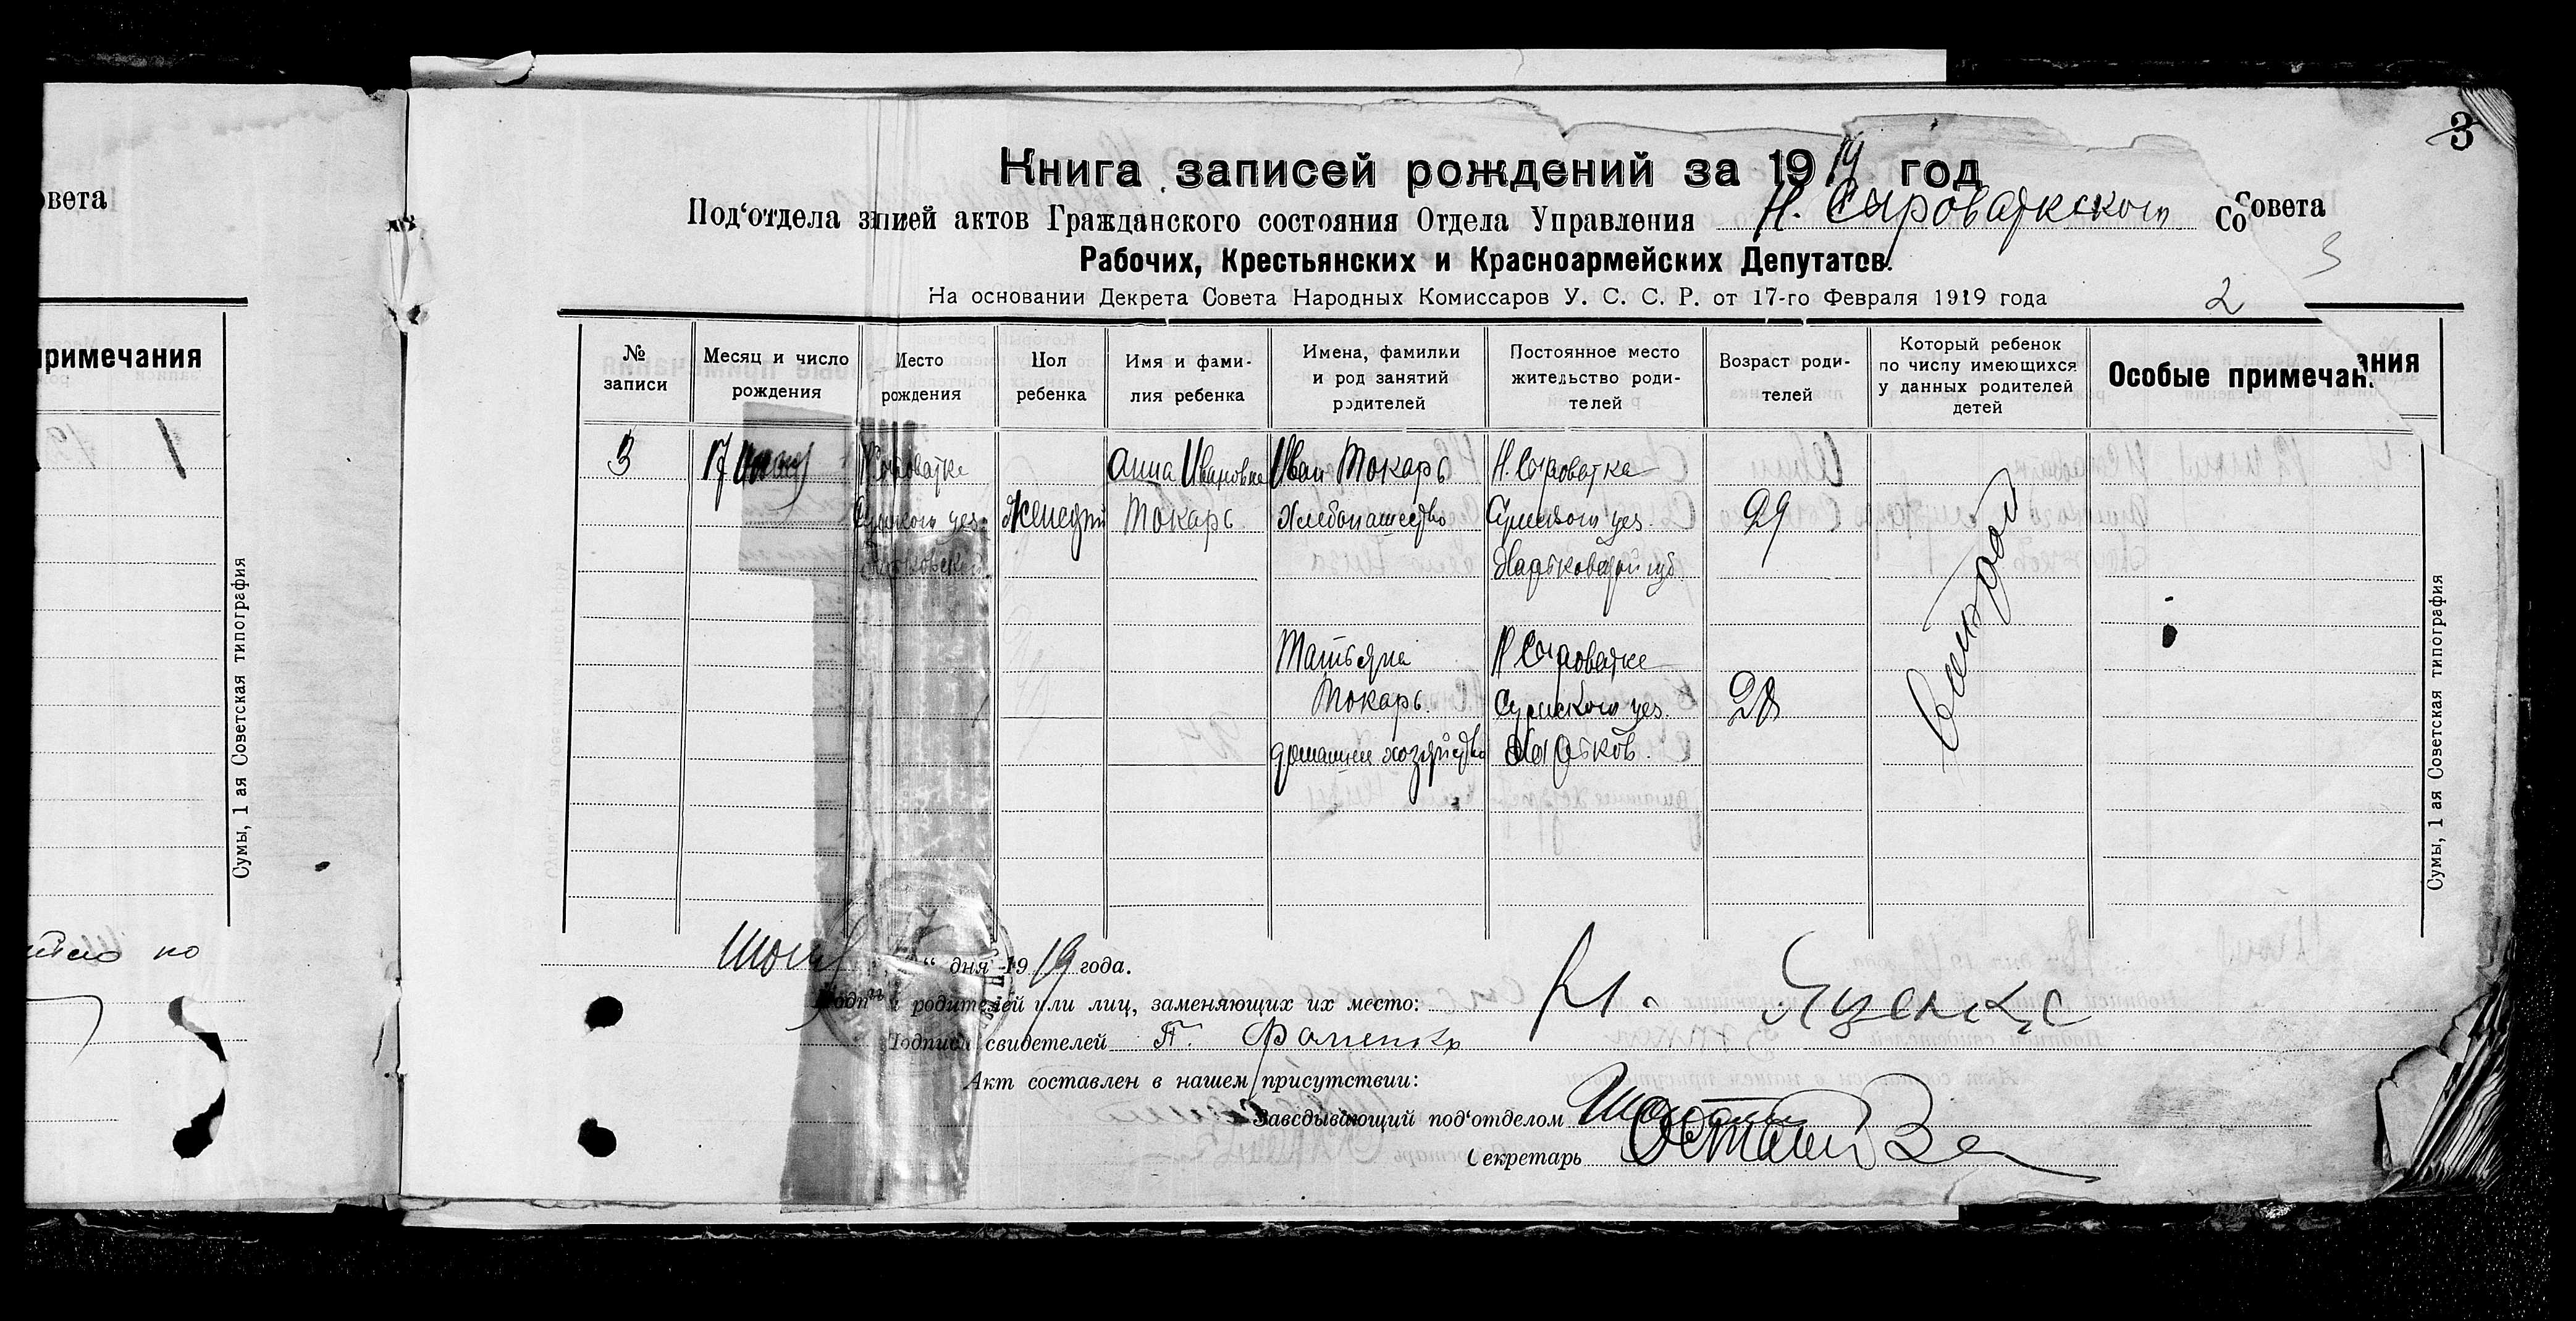 3
Книга записей рождений за 1919 год
Под‘отдела зписей актов Гражданского состояния Отдела Управления Н. Сыроваткского Совета
Рабочих, Крестьянских и Красноармейских Депутатов.
На основании Декрета Совета Народных Комиссаров У. С. С. Р. от 17-го Февраля 1919 года
3
2
овета
римечания
1
Сумы, 1 ая Советская типография
по
№ записи
Месяц и число рождения
Место рождения
Пол ребенка
Имя и фами-лия ребенка
Имена, фамилии и род занятий родителей
Постоянное место жительство роди-телей
Возраст роди-телей
Который ребенок по числу имеющихся у данных родителей детей
Особые примечания
3
17 Июня
Н. Сыроватке
Сумского уез.
Харьковской
Женский
Анна Ивановна
Токарь
Иван Токарь
Хлебопашество
Н. Сыроватка
Сумского уез.
Харьковской губ.
29
Татьяна
Токарь
домашнее хозяйство
Н. Сыроватке
Сумского уез.
Харьков.
28
Сумы, 1 ая Советская типография
“ дня 1919 года.
Подписи родителей или лиц, заменяющих их место:
Подписи свидетелей П.
Акт составлен в нашем присутствии:
Заведывающий под‘отделом
Секретарь